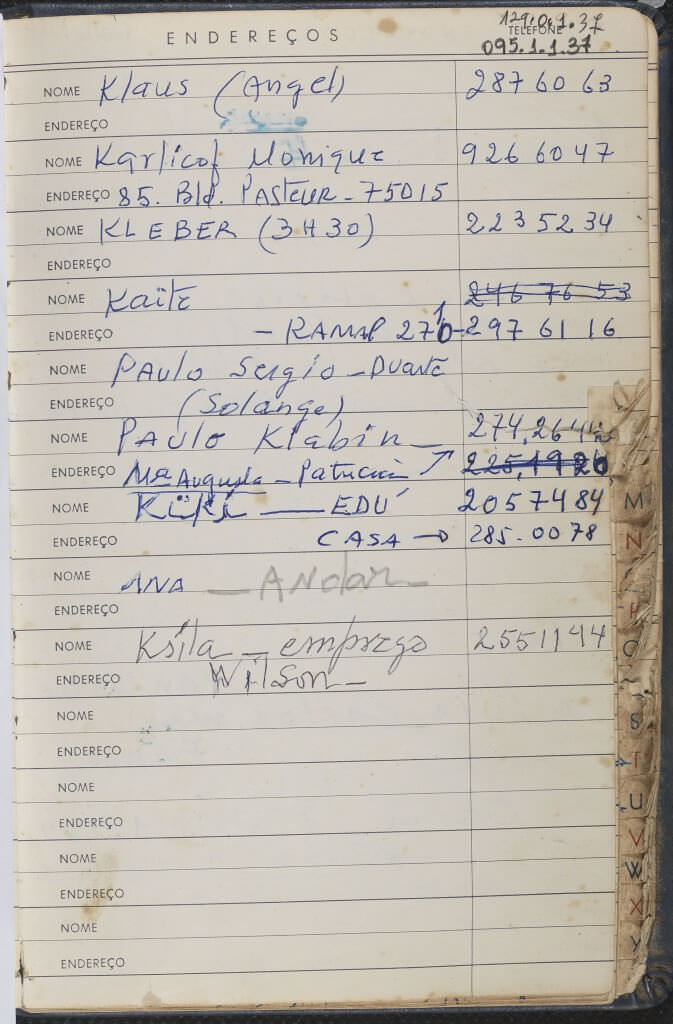 129.0.1.37
ENDEREÇOS TELEFONE
095.1.1.37
NOME Klaus (Angel) 287 60 63
ENDEREÇO
NOME Karlicof Monique 926 60 47
ENDEREÇO 85. Bld. PASTEUR - 75015
NOME KLEBER (3H30) 223 52 34
ENDEREÇO
NOME Kaïte 246 76 53
ENDEREÇO - RAMAL 27 - 297 61 16
NOME PAulo Sergio - Duarte
ENDEREÇO (Solange)
NOME PAulo Klabin - 274,26
ENDEREÇO Mª Augusta - Patricia ↗ 225,1920
NOME EDÚ 205 74 84
ENDEREÇO CASA → 285-0078
NOME ANA — ANdar —
ENDEREÇO
NOME — emprego 2551144
ENDEREÇO Wilson —
NOME
ENDEREÇO
NOME
ENDEREÇO
NOME
ENDEREÇO
NOME
ENDEREÇO
M
N
S
T
U
V
W
X
Y